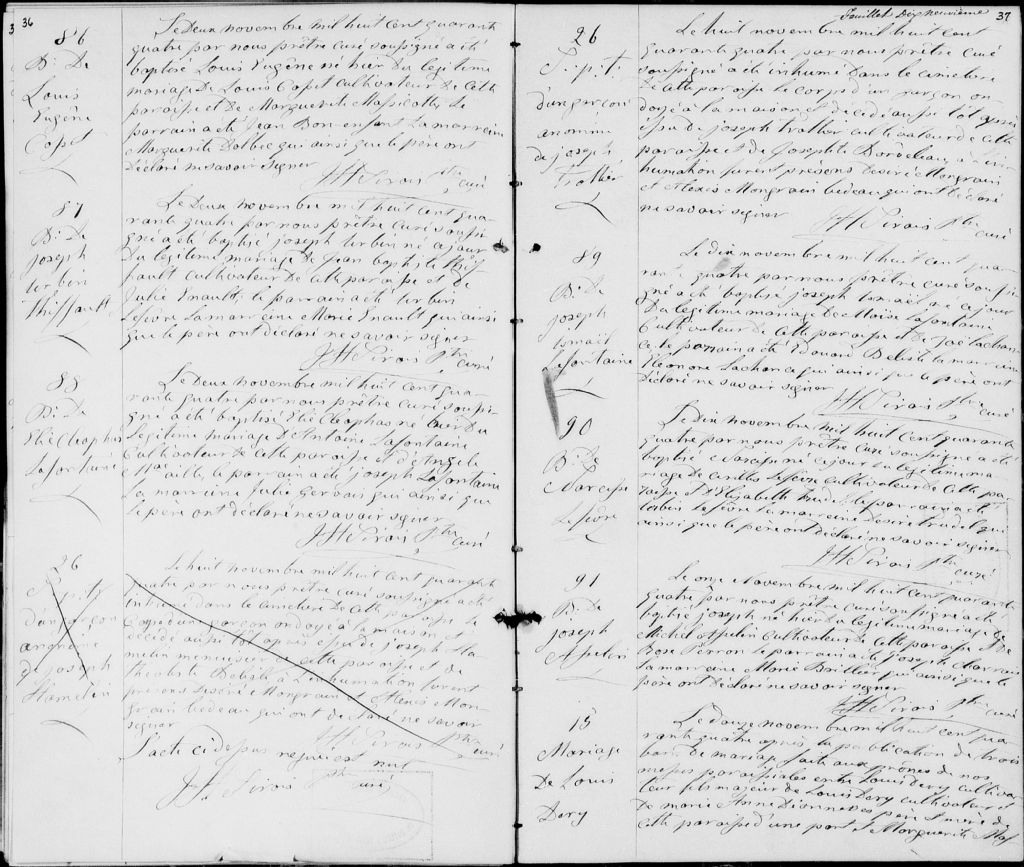 36
86
Bt. De
Louis
Eugène
Capet
Le Deux novembre mil huit Cent quarante
quatre par nous prêtre curé soussigné a été
baptisé Louis Eugène né hier du légitime
mariage de Louis Capet Cultivateur de Cette
paroisse et de Marguerite Massicotte le
parrain a été Jean Bonenfant La marraine
Marguerite Dolbec qui ainsi que le père ont
déclaré ne savoir signer
JH Sirois Ptre curé
87
Bt. De
Joseph
urbin
Thiffault
Le Deux novembre mil huit Cent qua-
rante quatre par nous prêtre Curé soussi-
gné a été baptisé joseph urbin né ce jour
du légitime mariage de Jean baptiste Thif-
fault cultivateur de Cette paroisse et de
Julie Enault; le parrain a été urbin
Lefèvre La marraine Marie Enault qui ainsi
que le père ont déclaré ne savoir signer
JH Sirois Ptre curé
88
Bt. De
Elie Cléophas
Lafontaine
Le Deux novembre mil huit Cent qua-
rante quatre par nous prêtre curé soussi-
gné a été baptisé Elie Cléophas né hier du
Légitime mariage d'Antoine Lafontaine
Cultivateur de Cette paroisse et d'Angele
Mailly, le parrain a été joseph Lafontaine
La marraine Julie Gervais qui ainsi que
le père ont déclaré ne savoir signer
JH Sirois Ptre curé
26
Sépte
D'un garçon
anonyme
de joseph
Hamelin
Le huit novembre mil huit Cent quarante
quatre par nous prêtre curé soussigné a été
inhumé dans le cimetière de Cette paroisse le
Corps d'un garçon ondoyé à la maison et
décédé aussi tôt après issu de joseph Ha-
melin menuisier de Cette paroisse et de
Théotiste à L'inhumation furent
présens Désiré Mongrain et Alexis Mon-
grain bedeau qui ont déclaré ne savoir
signer
JH Sirois Ptre curé
L'acte ci dessus requiert nul
JH Sirois Ptre curé
Feuillet Dixneuvième 37
26
Sépt.
d'un garçon
anonime
de joseph
Trottier
Le huit novembre mil huit Cent
quarante quatre par nous prêtre curé
soussigné a été inhumé dans le cimetière
de Cette paroisse le corps d'un garçon on-
doyé à la maison et décédé aussi tôt après
issu de joseph Trottier cultivateur de Cette
paroisse et de Josephte Bordeleau, à L'in-
humation furent présens Désiré Mongrain
et Alexis Mongrain bedeau qui ont déclaré
ne savoir signer
JH Sirois Ptre curé
89
Bt. De
Joseph
Ismaël
Lafontaine
Le dix novembre mil huit Cent qua-
rante quatre par nous prêtre curé soussi-
gné a été baptisé joseph Ismaël né ce jour
Du légitime mariage de Moïse Lafontaine
Cultivateur de Cette paroisse et de Lachan-
ce le parrain a été Edouard Delisle la marraine
Eléonore Lachance qui ainsi que le père ont
déclaré ne savoir signer
JH Sirois Ptre curé
90
Bt. De
Narcisse
Lefèvre
Le Dix novembre mil huit Cent quarante
quatre par nous prêtre Curé soussigné a été
baptisé Narcisse né ce jour du légitime ma-
riage de Lefèvre Cultivateur de Cette pa-
roisse et d'Elizabeth Trudel le parrain a été
urbin Lefèvre La marraine Désiré Trudel qui
ainsi que le père ont déclaré ne savoir signer
JH Sirois Ptre curé
91
Bt. De
Joseph
Asselin
Le onze Novembre mil huit Cent quarante
quatre par nous prêtre Curé soussigné a été
baptisé joseph né hier du légitime mariage de
Michel Asselin Cultivateur de Cette paroisse et de
Rose Perron Le parrain a été joseph
La marraine Marie qui ainsi que le
père ont déclaré ne savoir signer
JH Sirois Ptre curé
15
Mariage
De Louis
Dery
Le douze novembre mil huit Cent qua-
rante quatre après la publication de trois
bans de mariage faite aux prônes de nos
messes paroissiales entre Louis Dery cultiva-
teur fils majeur de Louis Dery cultivateur et
De Marie Anne Dionne ses père et mère de
Cette paroisse d'une part et Marguerite Mas-